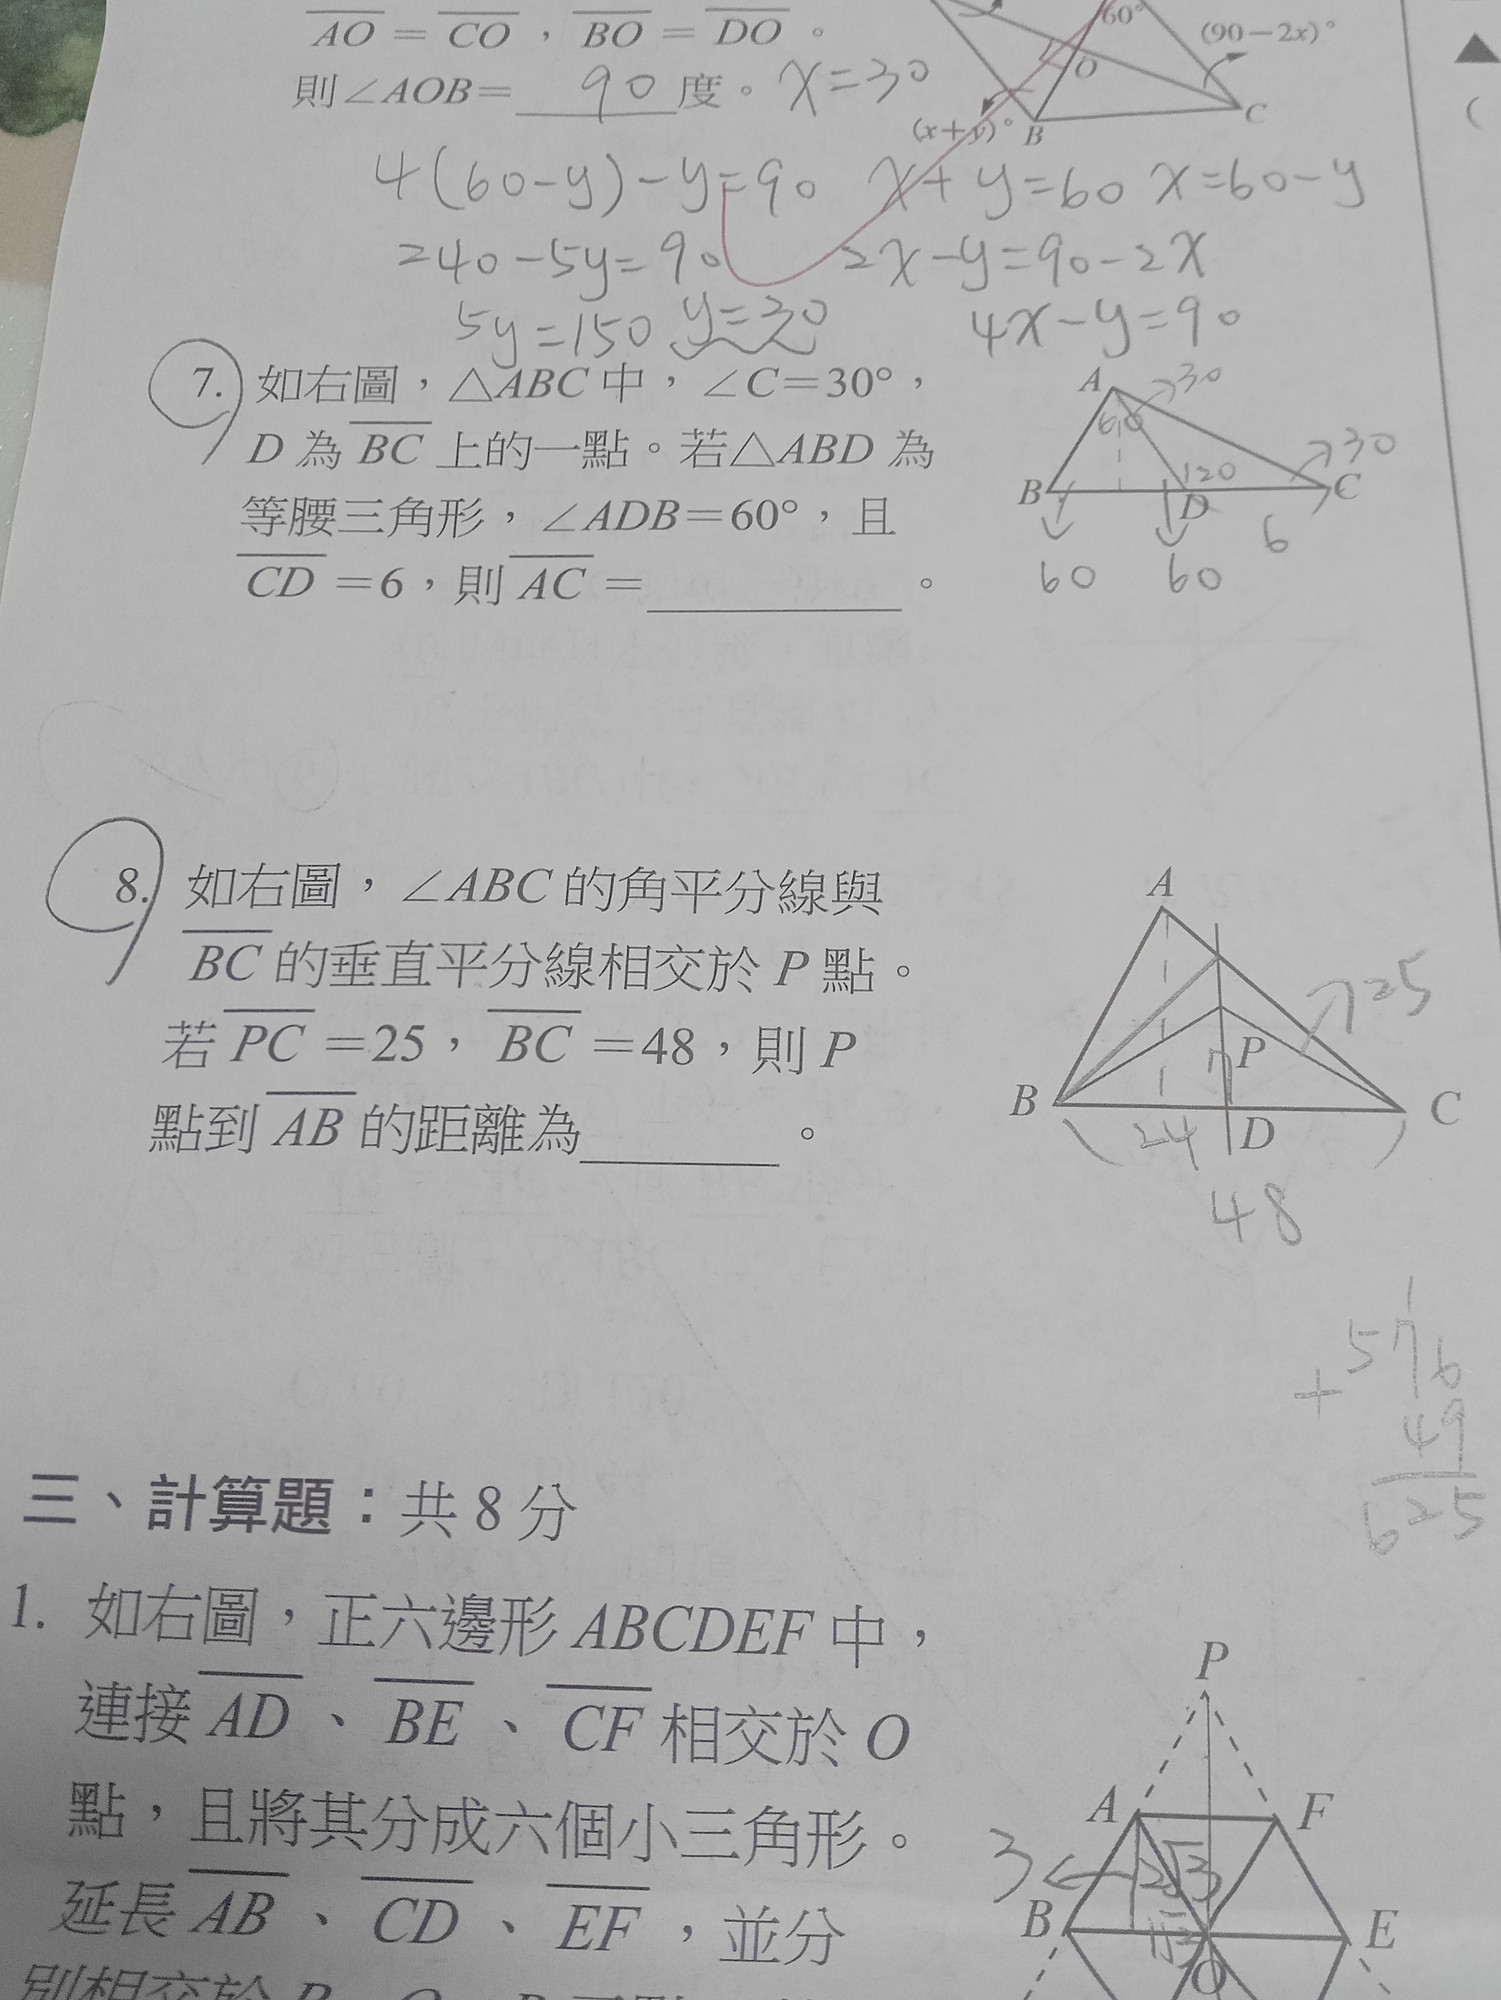 AO = CO , BO = DO 。
60°
(90-2x)°
則∠AOB= 90 度。 x=30
O
C
(x+y)° B
4(60-y)-y=90 x+y=60 x=60-y
240-5y=90 2x-y=90-2x
5y=150 y=30 4x-y=90
7. 如右圖，△ABC 中，∠C=30°，
D 為 BC 上的一點。若△ABD 為
等腰三角形，∠ADB=60°，且
CD =6，則 AC = 。
A 30
60
120 30
B D C
6
60 60
8. 如右圖，∠ABC 的角平分線與
BC 的垂直平分線相交於 P 點。
若 PC =25， BC =48，則 P
點到 AB 的距離為 。
A
25
7 P
B C
24 D
48
576
+ 49
625
三、計算題：共 8 分
1. 如右圖，正六邊形 ABCDEF 中，
連接 AD 、 BE 、 CF 相交於 O
點，且將其分成六個小三角形。
延長 AB 、 CD 、 EF ，並分
P
A F
3 2√3
B E
O